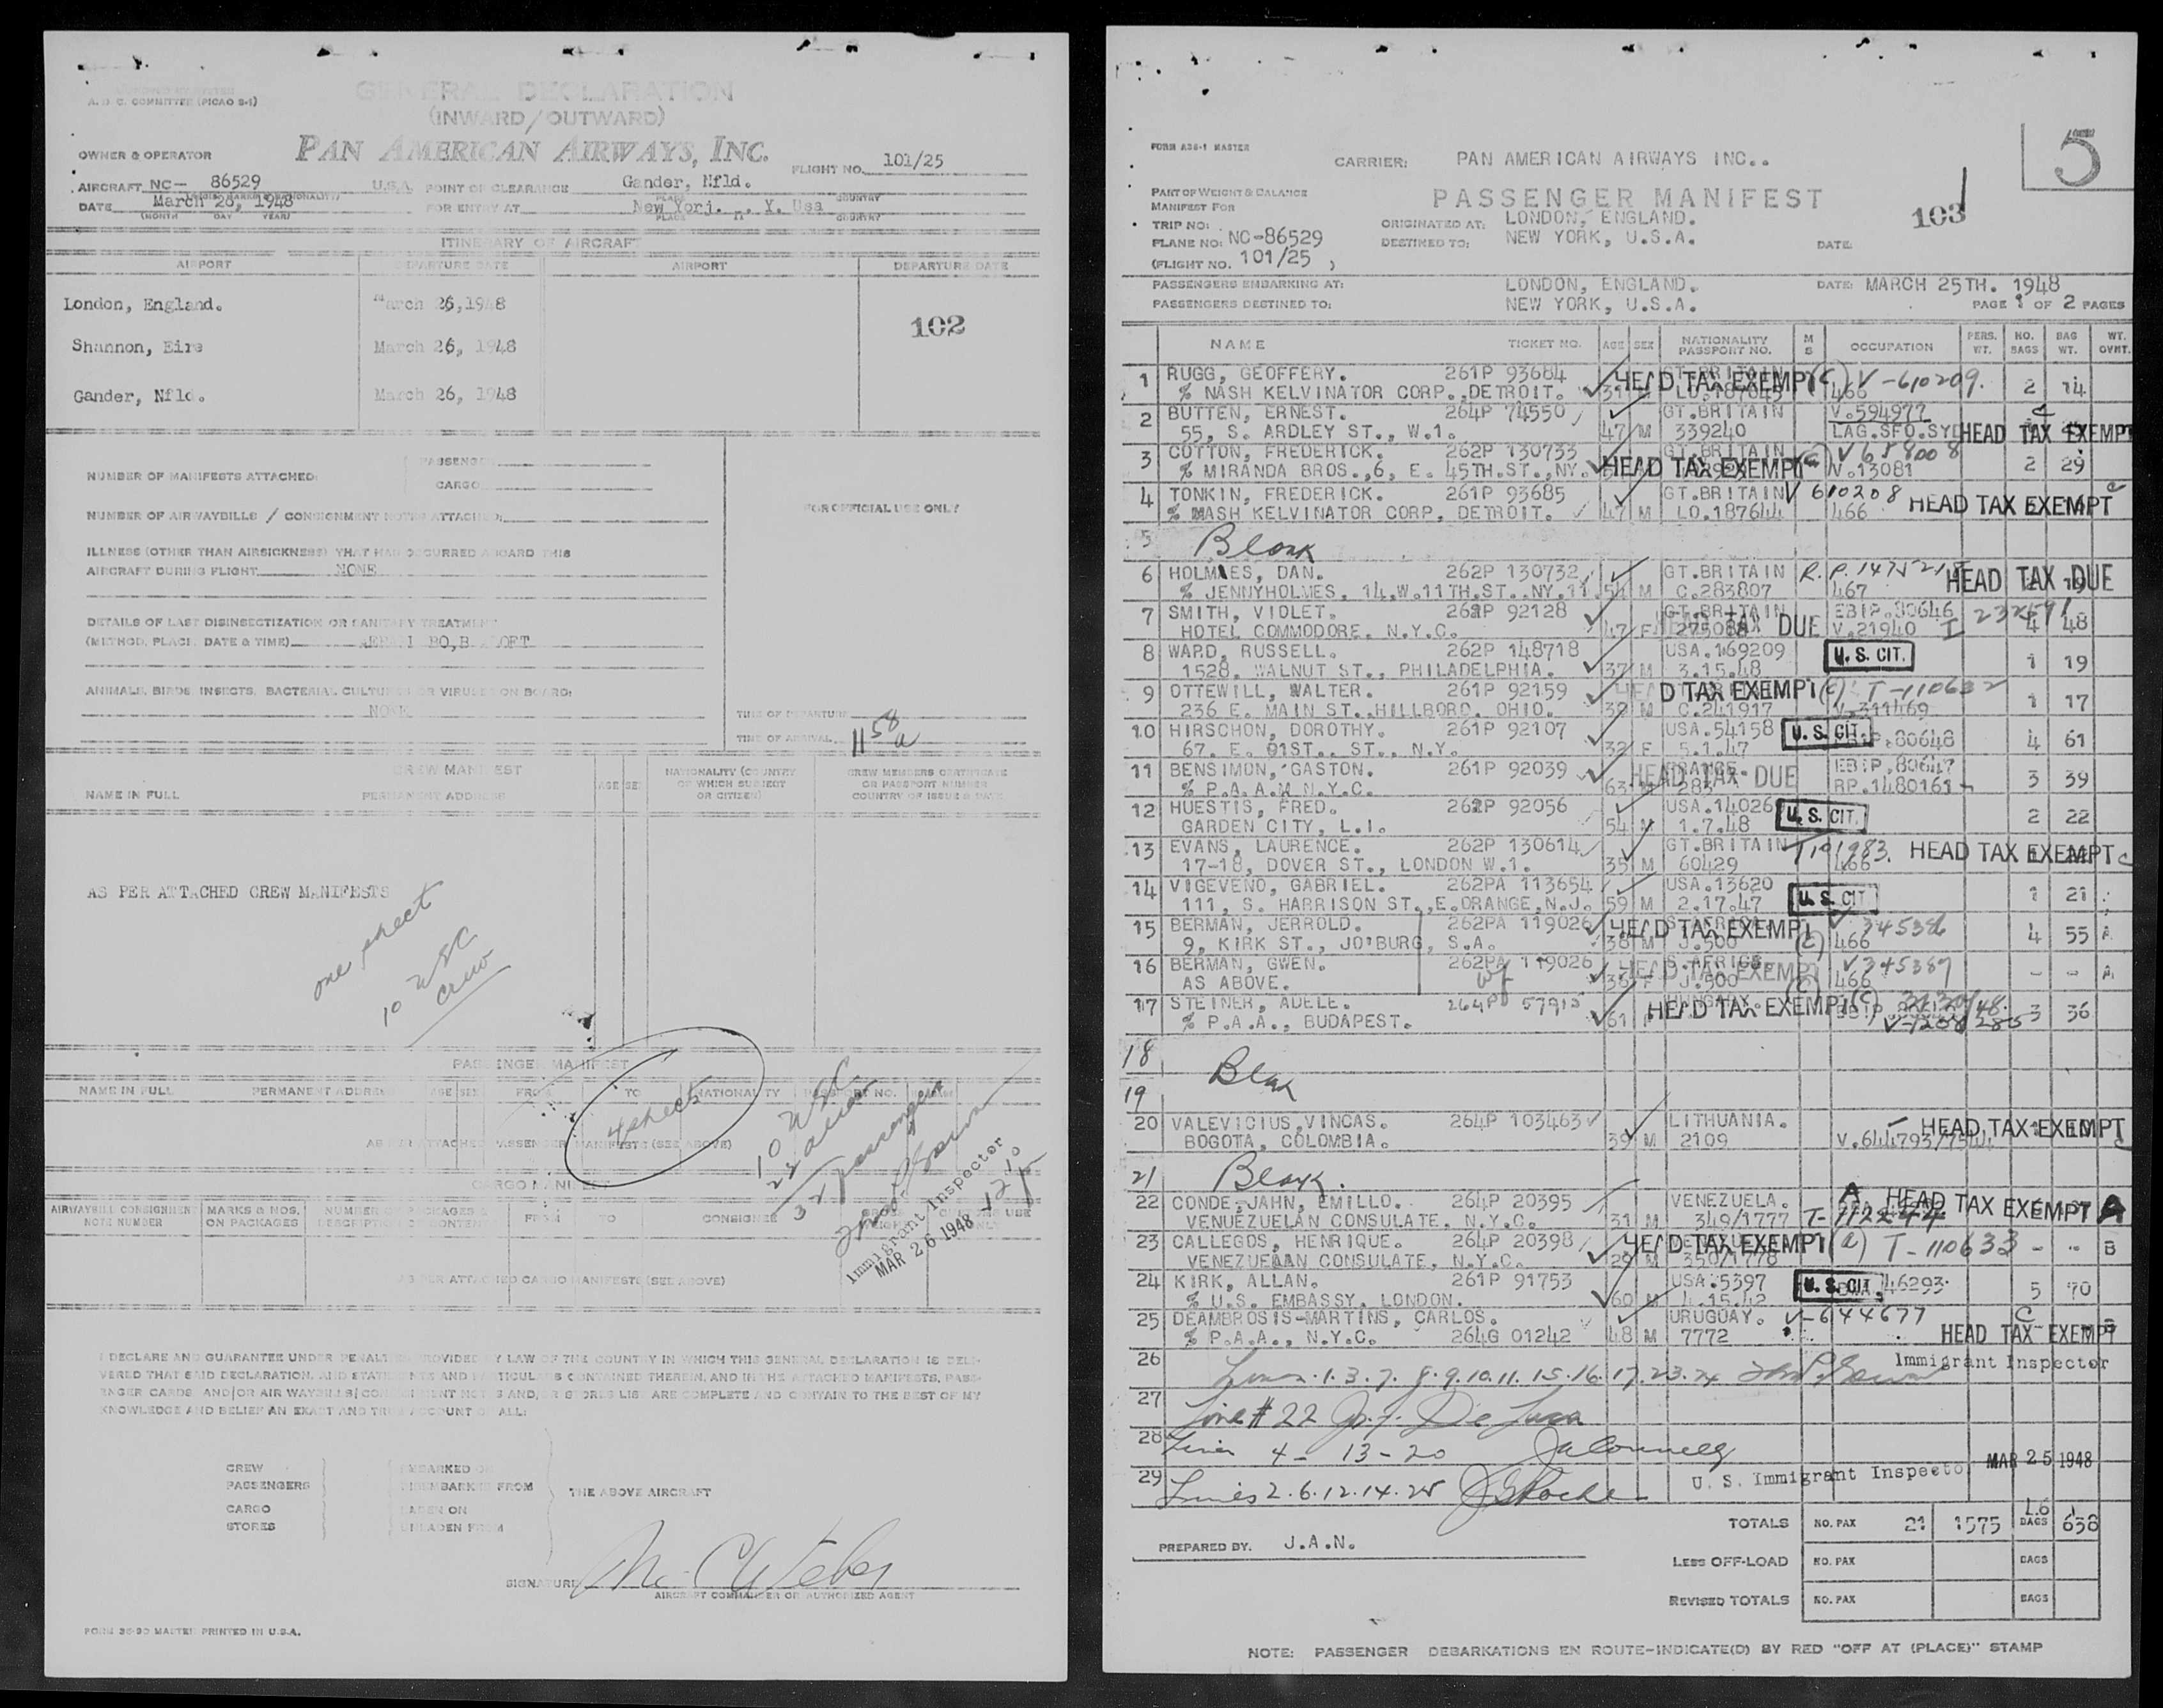 A. D. C. COMMITTEE (PICAO S-1)
GENERAL DECLARATION
(INWARD/OUTWARD)
OWNER & OPERATOR PAN AMERICAN AIRWAYS, INC. FLIGHT NO. 101/25
AIRCRAFT NC- 86529 U.S.A. POINT OF CLEARANCE Gander, Nfld.
DATE March 26, 1948 FOR ENTRY AT New Yorj. ., Y. Usa
(MONTH DAY YEAR) PLACE COUNTRY
ITINERARY OF AIRCRAFT
AIRPORT DEPARTURE DATE AIRPORT DEPARTURE DATE
London, England. March 26,1948
102
Shannon, Eire March 26, 1948
Gander, Nfld. March 26, 1948
NUMBER OF MANIFESTS ATTACHED: PASSENGER
CARGO
FOR OFFICIAL USE ONLY
NUMBER OF AIRWAYBILLS / CONSIGNMENT NOTES ATTACHED:
ILLNESS (OTHER THAN AIRSICKNESS) THAT HAS OCCURRED ABOARD THIS
AIRCRAFT DURING FLIGHT NONE
DETAILS OF LAST DISINSECTIZATION OR SANITARY TREATMENT
(METHOD, PLACE, DATE & TIME)
ANIMALS, BIRDS, INSECTS, BACTERIAL CULTURES OR VIRUSES ON BOARD:
NONE
TIME OF DEPARTURE
TIME OF ARRIVAL 11 58 a
CREW MANIFEST
NAME IN FULL PERMANENT ADDRESS AGE SEX NATIONALITY (COUNTRY OF WHICH SUBJECT OR CITIZEN) CREW MEMBERS CERTIFICATE OR PASSPORT NUMBER COUNTRY OF ISSUE & DATE
AS PER ATTACHED CREW MANIFESTS
one sheet
10 USC
crew
PASSENGER MANIFEST
NAME IN FULL PERMANENT ADDRESS AGE SEX FROM TO NATIONALITY PASSPORT NO.
4 sheets
10 USC
22 aliens
32 passengers
AS PER ATTACHED PASSENGER MANIFESTS (SEE ABOVE)
Immigrant Inspector
MAR 26 1948
CARGO MANIFEST
AIRWAYBILL CONSIGNMENT NOTE NUMBER MARKS & NOS. ON PACKAGES NUMBER OF PACKAGES & DESCRIPTION OF CONTENTS FROM TO CONSIGNEE
AS PER ATTACHED CARGO MANIFESTS (SEE ABOVE)
I DECLARE AND GUARANTEE UNDER PENALTIES PROVIDED BY LAW OF THE COUNTRY IN WHICH THIS GENERAL DECLARATION IS DELI-
VERED THAT SAID DECLARATION, AND STATEMENTS AND PARTICULARS CONTAINED THEREIN, AND IN THE ATTACHED MANIFESTS, PASS-
ENGER CARDS AND/OR AIR WAYBILLS/CONSIGNMENT NOTES AND/OR STORES LIST ARE COMPLETE AND CONTAIN TO THE BEST OF MY
KNOWLEDGE AND BELIEF AN EXACT AND TRUE ACCOUNT OF ALL:
CREW EMBARKED ON
PASSENGERS DISEMBARKED FROM THE ABOVE AIRCRAFT
CARGO LADEN ON
STORES UNLADEN FROM
SIGNATURE
AIRCRAFT COMMANDER OR AUTHORIZED AGENT
FORM 36-90 MASTER PRINTED IN U.S.A.
5
FORM A36-1 MASTER
CARRIER: PAN AMERICAN AIRWAYS INC..
PART OF WEIGHT & BALANCE
MANIFEST FOR
PASSENGER MANIFEST
103
TRIP NO: ORIGINATED AT: LONDON, ENGLAND.
PLANE NO: NC-86529 DESTINED TO: NEW YORK, U.S.A. DATE
(FLIGHT NO. 101/25 )
PASSENGERS EMBARKING AT: LONDON, ENGLAND. DATE: MARCH 25TH. 1948
PASSENGERS DESTINED TO: NEW YORK, U.S.A. PAGE 1 OF 2 PAGES
NAME TICKET NO. AGE SEX NATIONALITY PASSPORT NO. M S OCCUPATION PERS. WT. NO. BAGS BAG WT. WT. OVHT.
1 RUGG, GEOFFERY. 261P 93684 HEAD TAX EXEMPT (c) V-610209.
% NASH KELVINATOR CORP.,DETROIT. 466 2 14
2 BUTTEN, ERNEST. 264P 74550 GT.BRITAIN V.594977
55, S. ARDLEY ST., W.1. 47 M 339240 LAG.SFO.SYD HEAD TAX EXEMPT
3 COTTON, FREDERICK. 262P 130733 GT.BRITAIN (c) V 658008
% MIRANDA BROS.,6, E. 45TH.ST.,NY. HEAD TAX EXEMPT V.13081 2 29
4 TONKIN, FREDERICK. 261P 93685 GT.BRITAIN V 610208 HEAD TAX EXEMPT c
% MASH KELVINATOR CORP, DETROIT. 47 M LO.187644 466
5 Blank
6 HOLMAES, DAN. 262P 130732 GT.BRITAIN HEAD TAX DUE
% JENNYHOLMES, 14.W.11TH.ST..NY.11. 54 M C.283807 467
7 SMITH, VIOLET. 262P 92128 GT.BRITAIN EBIP.80646
HOTEL COMMODORE. N.Y.C. 47 F HEAD TAX DUE V.21940 4 48
8 WARD, RUSSELL. 262P 148718 USA.169209 U. S. CIT.
1528. WALNUT ST., PHILADELPHIA. 37 M 3.15.48 1 19
9 OTTEWILL, WALTER. 261P 92159 HEAD TAX EXEMPT (c) T-110632
236 E. MAIN ST.,HILLBORO. OHIO. 39 M C.241917 V.311469 1 17
10 HIRSCHON, DOROTHY. 261P 92107 USA.54158 U. S. CIT.
67. E. 91ST.. ST., N.Y. 32 F 5.1.47 80648 4 61
11 BENSIMON, GASTON. 261P 92039 HEAD TAX DUE EBIP.80647
% P.A.A.M N.Y.C. 63 M RP.1480161 3 39
12 HUESTIS, FRED. 262P 92056 USA.14026 U. S. CIT.
GARDEN CITY, L.I. 54 M 1.7.48 2 22
13 EVANS, LAURENCE. 262P 130614 GT.BRITAIN T 101983. HEAD TAX EXEMPT c
17-18, DOVER ST., LONDON W.1. 35 M 60429 466
14 VIGEVENO, GABRIEL. 262PA 113654 USA.13620 U. S. CIT.
111, S. HARRISON ST.,E.ORANGE,N.J. 59 M 2.17.47 1 21
15 BERMAN, JERROLD. 262PA 119026 HEAD TAX EXEMPT V 345386
9, KIRK ST., JO'BURG, S.A. 38 M J.500 (c) 466 4 55 A
16 BERMAN, GWEN. 262PA 119026 wf S.AFRICA HEAD TAX EXEMPT V 345387
AS ABOVE. 36 F J.500 (c) 466 - - A
17 STEINER, ADELE. 264P 57915 HUNGARY. HEAD TAX EXEMPT (c)
% P.A.A., BUDAPEST. 61 V-1208285 3 36
18 Blank
19
20 VALEVICIUS,VINCAS. 264P 103463 LITHUANIA. HEAD TAX EXEMPT
BOGOTA, COLOMBIA. 39 M 2109 V.644793/7544 c
21 Blank.
22 CONDE-JAHN, EMILLO. 264P 20395 VENEZUELA. A HEAD TAX EXEMPT A
VENUEZUELAN CONSULATE. N.Y.C. 31 M 349/1777 T-112244
23 CALLEGOS, HENRIQUE. 264P 20398 HEAD TAX EXEMPT (a) T-110633 - - B
VENEZUELAN CONSULATE, N.Y.C. 29 M 350/1778
24 KIRK, ALLAN. 261P 91753 USA.5397 U. S. CIT. 46293.
% U.S. EMBASSY, LONDON. 60 M 4.15.42 5 70
25 DEAMBROSIS-MARTINS, CARLOS. URUGUAY. V-644677 C
% P.A.A., N.Y.C. 264G 01242 48 M 7772 HEAD TAX EXEMPT
26 Lines. 1. 3. 7. 8. 9. 10. 11. 15. 16. 17. 23. 24 Immigrant Inspector
27 Line # 22 De Luca
28 Lines 4 - 13 - 20
29 Lines 2. 6. 12. 14. 25 U. S. Immigrant Inspector MAR 25 1948
TOTALS NO. PAX 21 1575 BAGS 46 638
PREPARED BY. J.A.N.
LESS OFF-LOAD NO. PAX BAGS
REVISED TOTALS NO. PAX BAGS
NOTE: PASSENGER DEBARKATIONS EN ROUTE-INDICATE(D) BY RED "OFF AT (PLACE)" STAMP